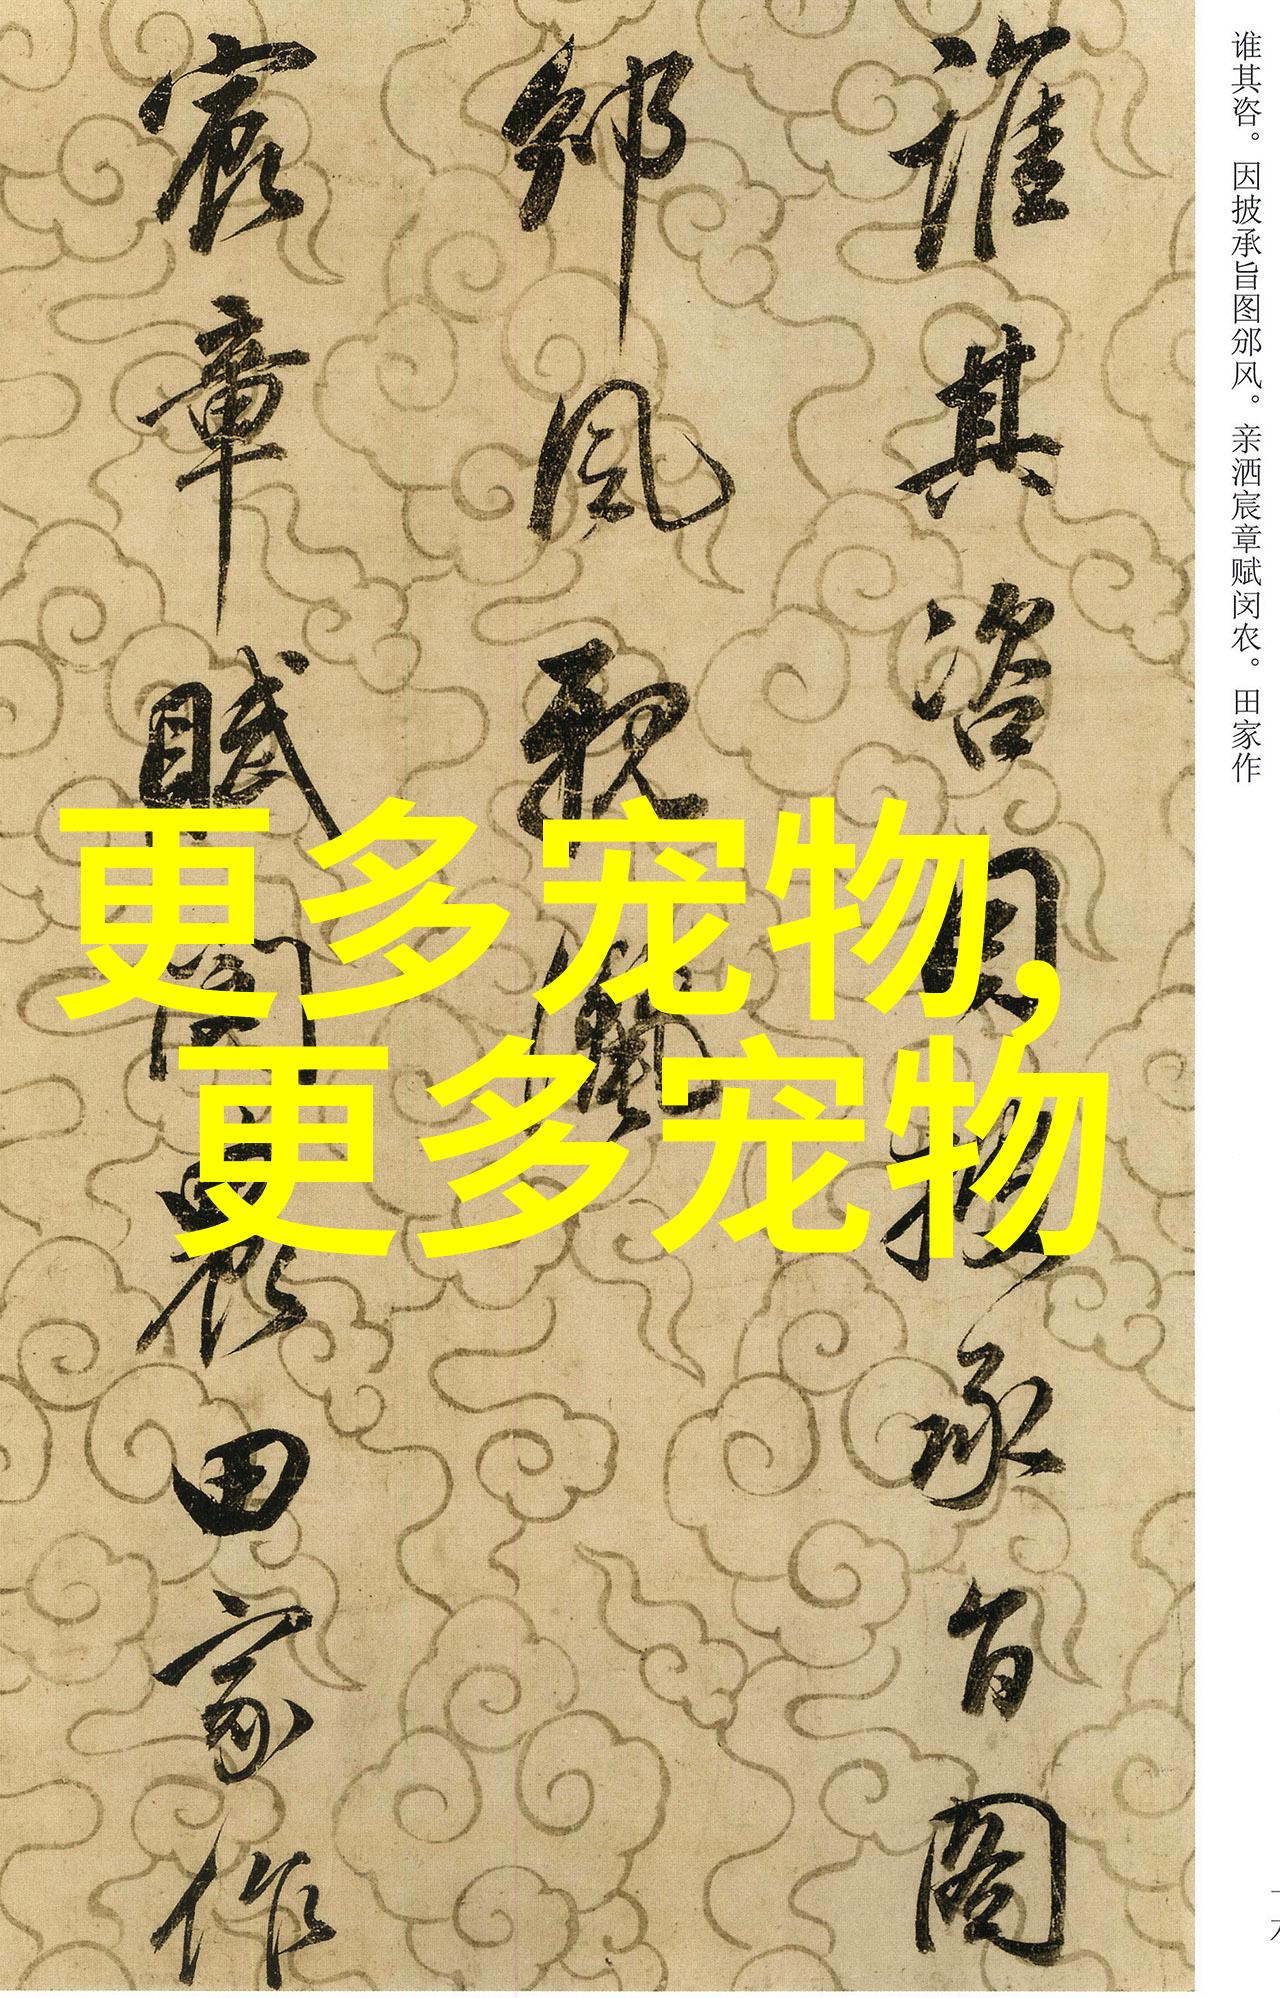 谁其咨。因披承旨图邠风。亲洒宸章赋闵农。田家作
誰其咨因披承旨圖
邠風親灑
宸章賦閔農田家作
更多宠物,
更多宠物